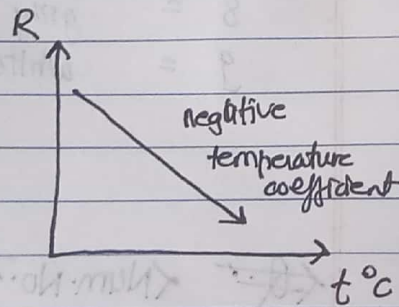 R
negative
temperature
coefficient
t °c